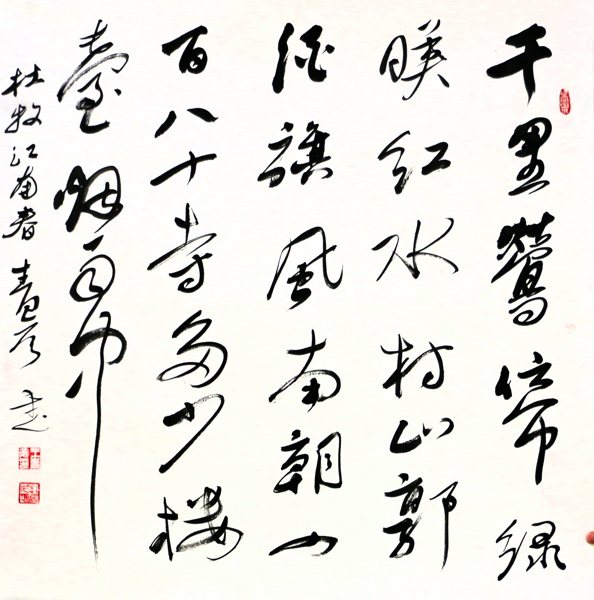 千里鶯啼绿
暎红水村山郭
酒旗風南朝四
百八十寺多少楼
臺烟雨中
杜牧江南春 書